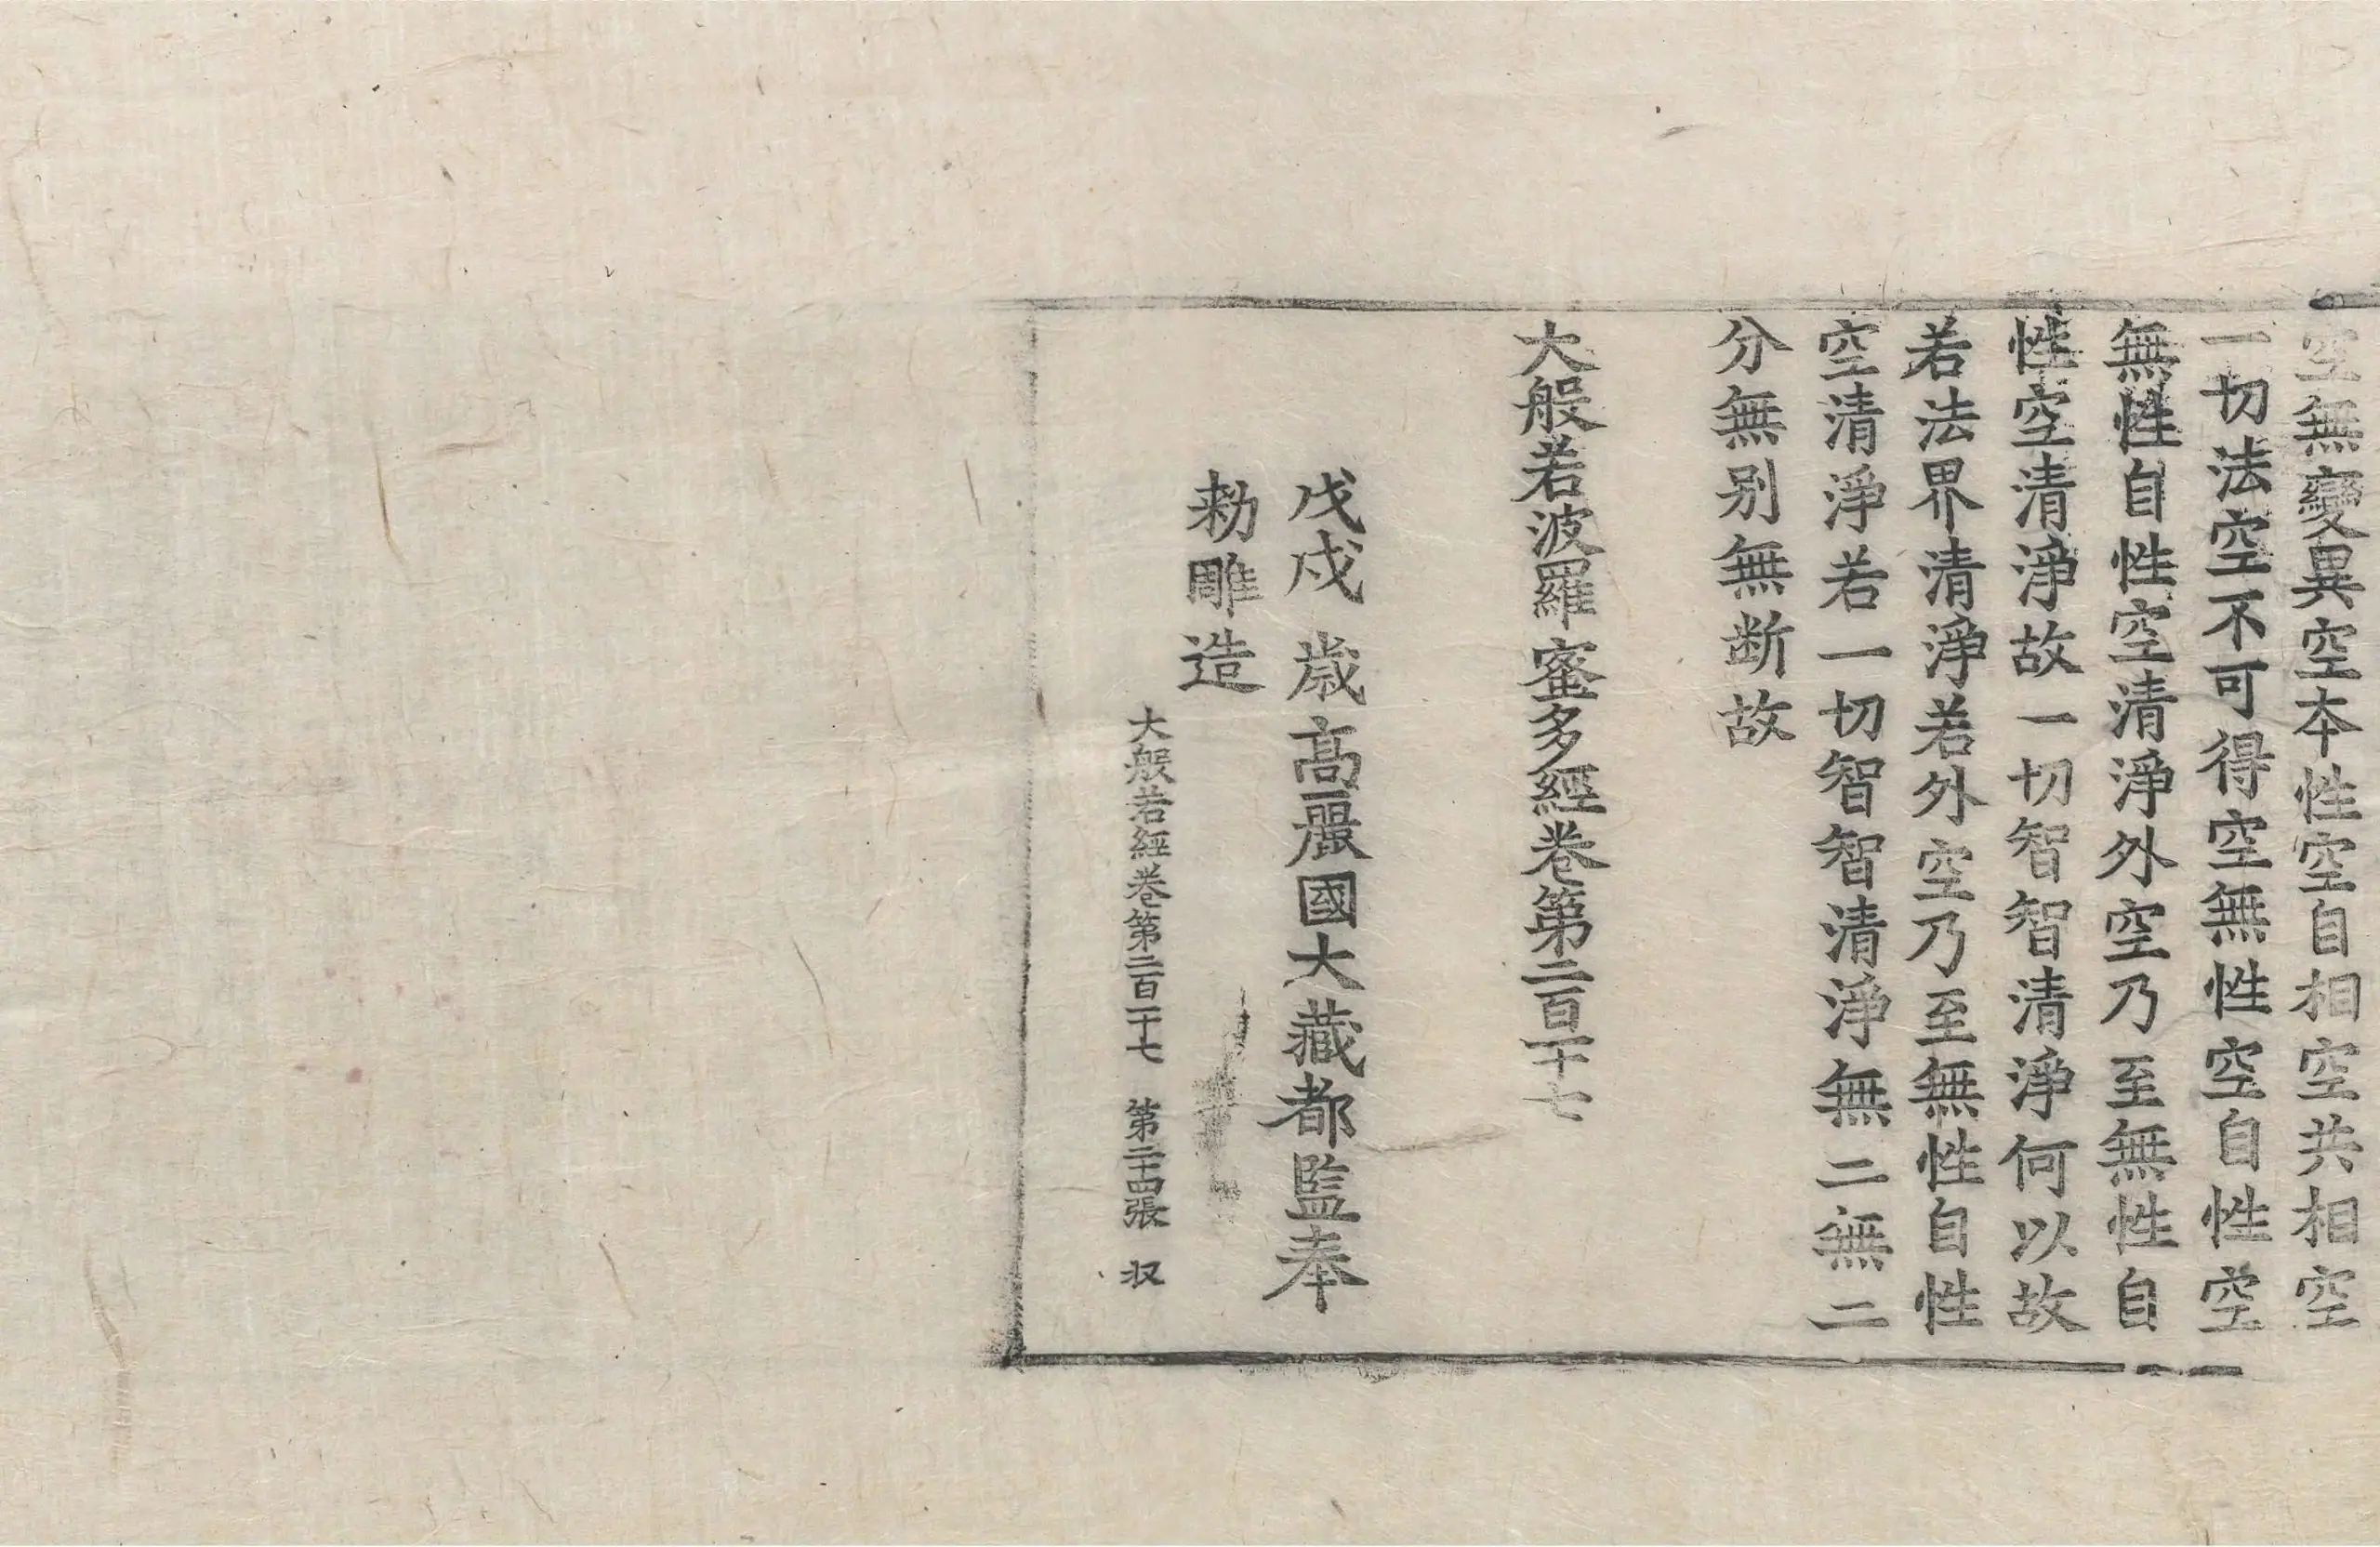 空無變異空本性空自相空共相空
一切法空不可得空無性空自性空
無性自性空清淨外空乃至無性自
性空清淨故一切智智清淨何以故
若法界清淨若外空乃至無性自性
空清淨若一切智智清淨無二無二
分無别無断故
大般若波羅蜜多經卷第二百一十七
戊戌歳高麗國大藏都監奉
勑雕造
大般若經卷第二百一十七 第二十四張 収